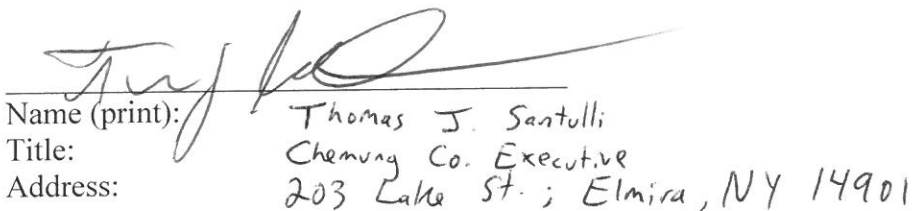 Name (print): Thomas J. Santulli
Title: Chemung Co. Executive
Address: 203 Lake St. ; Elmira, NY 14901